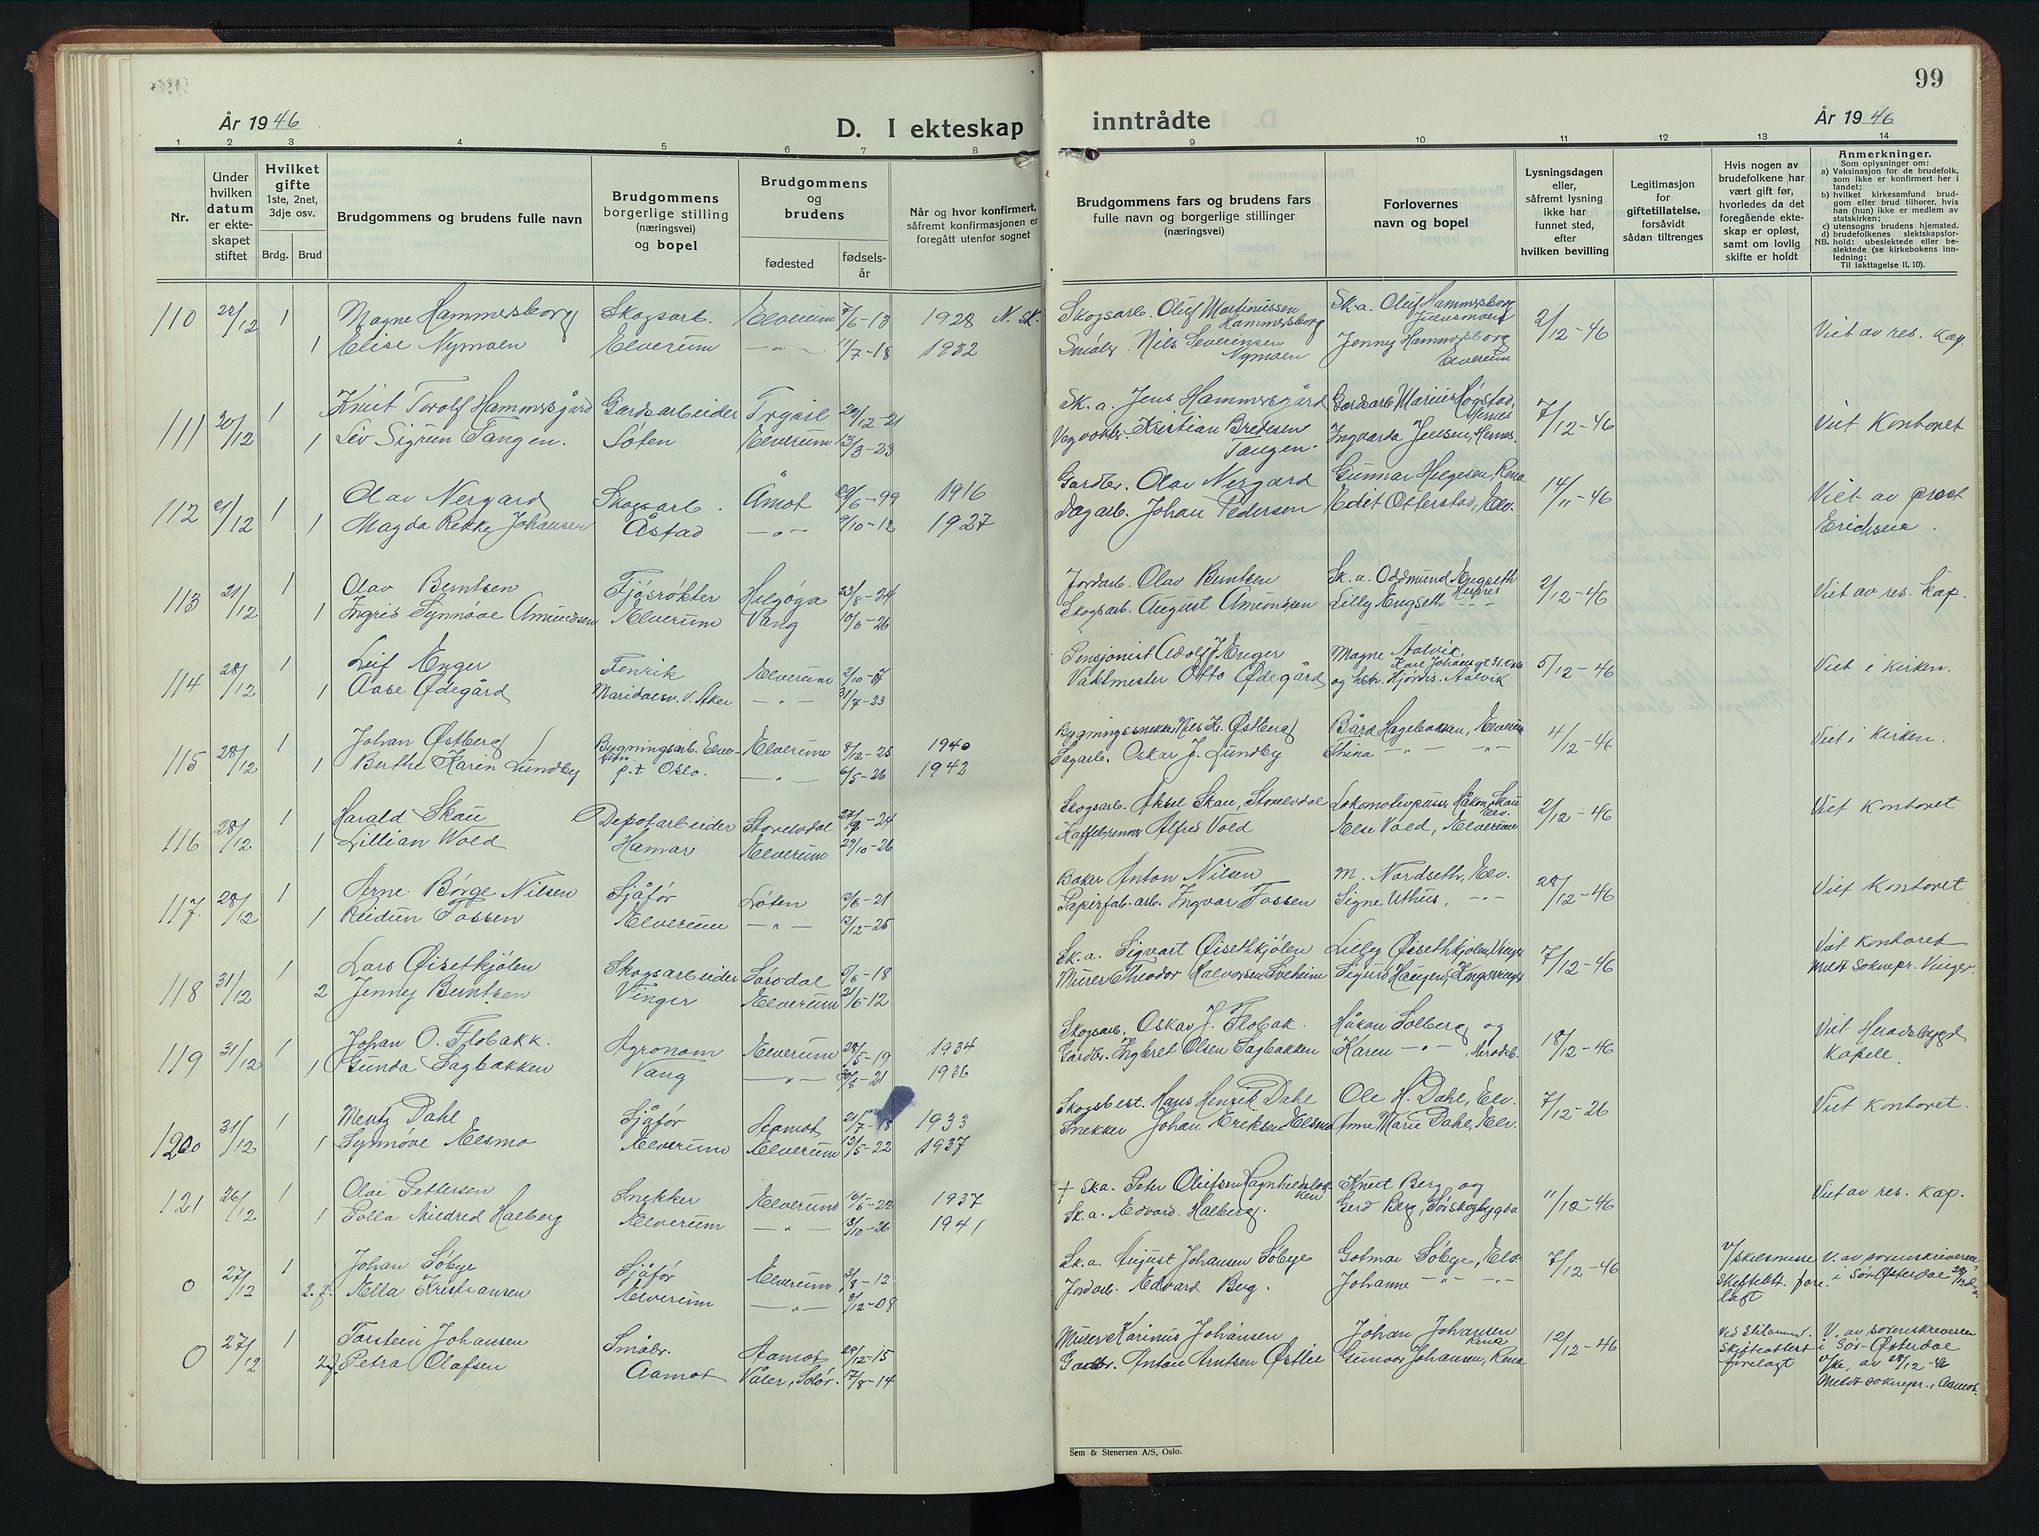 99
År 1946
D. I ekteskap
inntrådte
År 1946
1 2 3 4 5 6 7 8 9 10 11 12 13 14
Nr.
Under hvilken datum er ekteskapet stiftet
Hvilket gifte 1ste, 2net, 3dje osv.
Brdg. Brud
Brudgommens og brudens fulle navn
Brudgommens borgerlige stilling (næringsvei) og bopel
Brudgommens og brudens
fødested
fødselsår
Når og hvor konfirmert, såfremt konfirmasjonen er foregått utenfor sognet
Brudgommens fars og brudens fars fulle navn og borgerlige stillinger (næringsvei)
Forlovernes navn og bopel
Lysningsdagen eller, såfremt lysning ikke har funnet sted, efter hvilken bevilling
Legitimasjon for giftetillatelse, forsåvidt sådan tiltrenges
Hvis nogen av brudefolkene har vært gift før, hvorledes da det foregående ekteskap er opløst, samt om lovlig skifte er holdt
Anmerkninger.
Som oplysninger om:
a) Vaksinasjon for de brudefolk, som ikke er konfirmert her i landet;
b) hvilket kirkesamfund brudgom eller brud tilhører, hvis han (hun) ikke er medlem av statskirken;
c) utensogns brudens hjemsted.
d) brudefolkenes slektskapsforhold: ubeslektede eller beslektede (se kirkebokens innledning:
NB. Til iakttagelse II. 10).
110 22/12 1 Magne Hammersborg Skogsarb. Elverum 7/6-13 1928 N. Sk. Skogsarb. Oluf Martinussen Hammersborg Sk.a. Oluf Hammersborg 2/12-46 Viet av res. Kap.
1 Elise Nymoen Elverum -"- 11/7-18 1932 Småbr. Nils Severinsen Nymoen Jenny Hammersborg Elverum
111 20/12 1 Knut Torolf Hammersgård Gårdsarbeider Trysil 29/12-21 Sk.a. Jens Hammersgård Gårdsarb. Marius Høgstad, Hernes 7/12-46 Viet Kontoret
1 Liv Sigrun Tangen. Løten Elverum 13/3-23 Vegvokter Kristian Bredesen Tangen. Ingvarda Jensen, Hernes.
112 21/12 1 Olav Nergård Skogsarb. Åmot 29/6-99 1916 Gårdbr. Olav Nergård Gunnar Helgesen, Rena 14/11-46 Viet av prost Erichsen.
1 Magda Rekke Johansen Åstad -"- 7/10-12 1927 Dagarb. Johan Pedersen Edit Otterstad, Elv.
113 21/12 1 Olav Berntsen Fjøsrøkter Helgøya 23/8-24 Jordarb. Olav Berntsen Sk.a. Oddmund Engseth Hernes 2/12-46 Viet av res. Kap.
1 Ingris Synnøve Amundsen Elverum Vang 10/6-26 Skogsarb. August Amundsen Lilly Engseth -"-
114 28/12 1 Leif Enger Fenrik Elverum 2/10-17 Pensjonist Adolf Enger Magne Aalvik, Karl Johansgt 31. Oslo 5/12-46 Viet i Kirken.
1 Aase Ødegård Maridalsv. V. Aker -"- 31/7-23 Vaktmester Otto Ødegård og hstr. Hjørdis Aalvik
115 28/12 1 Johan Østberg Bygningsarb. Elverum Elverum 8/12-25 1940 Bygningssnekker Nils Kr. Østberg Bård Hagebakken, Elverum 4/12-46 Viet i Kirken.
1 Berthe Karen Lundby p.t Oslo. -"- 6/5-26 1942 Sagarb. Oskar J. Lundby Stina -"- -"-
116 28/12 1 Harald Skau Depotarbeider Storelvdal 27/9-24 Skogsarb. Aksel Skau, Storelvdal Lokomotivpuss. Håkon Skau Elv. 2/12-46 Viet Kontoret
1 Lillian Wold Hamar Elverum 29/10-26 Kaffebrenner Alfred Vold Else Vold, Elverum
117. 28/12 1 Arne Børge Nilsen Sjåfør Løten 2/6-21 Baker Anton Nilsen M. Nordseth, Elv. 28/12-46 Viet Kontoret
1 Reidun Fossen Elverum -"- 12/12-25 Papirfab. arb. Ingvar Fossen Signe Uthus, -"-
118 31/12 1 Lars Øisethkjølen Skogsarbeider Sørodal 5/6-18 Sk.a. Sigvart Øisethkjølen Lilly Øisethkjølen, Vinger 7/12-46 Viet Kontoret
2 Jenney Berntsen Vinger Elverum 21/6-12 Murer Theodor Halvorsen Sveheim Sigurd Haugen, Kongsvinger Meldt Soknepr. Vinger.
119 31/12 1 Johan O. Flobakk. Agronom Elverum 28/5-19 1934 Skogsarb. Oskar J. Flobak. Håkon Solberg og 18/12-46 Viet Heradsbygd Kapell.
1 Gunda Sagbakken Vang -"- 30/8-21 1936 Gårdbr. Ingbret Olsen Sagbakken Karen -"-, Heradsb.
120 31/12 1 Mentz Dahl Sjåfør Aamot, 21/7-18 1933 Skogsbest. Hans Henrik Dahl Ole H. Dahl, Elv. 7/12-26 Viet Kontoret.
1 Synnøve Elsmo Elverum Elverum 12/5-22 1937 Snekker Johan Eriksen Elsmo Anne Marie Dahl, Elv.
121 26/12 1 Olai Pettersen Snekker Elverum 16/6-22 1937 + Ska. Peter Olufsen Ragnhildsløkken Knud Berg og 11/12-46 Viet av res. Kap.
1 Solla Mildred Halberg Elverum -"- 3/10-26 1941 Sk.a. Edvard Halberg. Gerd Berg, Sørskogbygda
0 27/12 1 Johan Søbye Sjåfør Elverum 3/8-12 Sk.a. August Johansen Søbye Gotmar Søbye, Elv. 7/12-46 v/ Skilsmisse Skifteatt. forelagt V. av sorenskriveren i Sør-Østerdal
2.f. Ella Kristiansen Elverum -"- 8/12-08 Jordarb. Edvard Berg. Johanne -"- -"-
0 27/12 1 Torstein Johansen Småbr. Aamot 20/12-15 Murer Karinus Johansen Johan Johansen Rena 12/12-46 Ved skilsmisse. Skifteattest forelagt V. av sorenskriveren i Sør-Østerdal
2f Petra Olafsen Aamot Våler, Solør. 17/8-14 Gårdbr. Anton Arntsen Østlie Gunvor Johansen, Rena av 28/12-46 Meldt soknepr. i Aamot.
Sem & Stenersen A/S, Oslo.